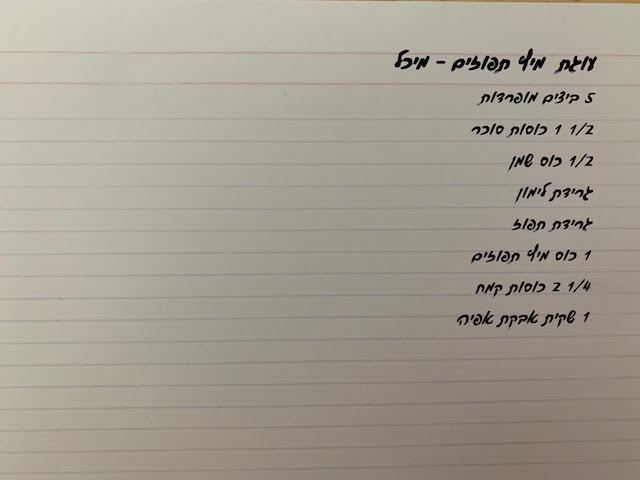 עוגת מיץ תפוזים - מיכל
5 ביצים מופרדות
1 1/2 כוסות סוכר
1/2 כוס שמן
גרידת לימון
גרידת תפוז
1 כוס מיץ תפוזים
2 1/4 כוסות קמח
1 שקית אבקת אפיה